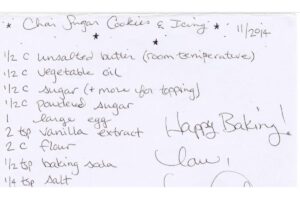 * Chai Sugar Cookies & Icing * 11/2014
1/2 c unsalted butter (room temperature)
1/2 c vegetable oil
1/2 c sugar (+ more for topping)
1/2 c powdered sugar
1 large egg
2 tsp vanilla extract
2 c flour
1/2 tsp baking soda
1/4 tsp salt
Happy Baking!